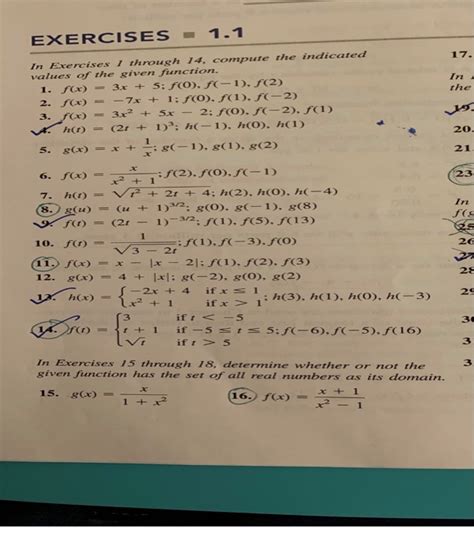 EXERCISES ■ 1.1
In Exercises 1 through 14, compute the indicated
values of the given function.
1. f(x) = 3x + 5; f(0), f(−1), f(2)
2. f(x) = −7x + 1; f(0), f(1), f(−2)
3. f(x) = 3x² + 5x − 2; f(0), f(−2), f(1)
4. h(t) = (2t + 1)³; h(−1), h(0), h(1)
5. g(x) = x + 1/x; g(−1), g(1), g(2)
6. f(x) = x/(x² + 1); f(2), f(0), f(−1)
7. h(t) = √(t² + 2t + 4); h(2), h(0), h(−4)
8. g(u) = (u + 1)^(3/2); g(0), g(−1), g(8)
9. f(t) = (2t − 1)^(−3/2); f(1), f(5), f(13)
10. f(t) = 1/√(3 − 2t); f(1), f(−3), f(0)
11. f(x) = x − |x − 2|; f(1), f(2), f(3)
12. g(x) = 4 + |x|; g(−2), g(0), g(2)
13. h(x) = { −2x + 4 if x ≤ 1
x² + 1 if x > 1 ; h(3), h(1), h(0), h(−3)
14. f(t) = { 3 if t < −5
t + 1 if −5 ≤ t ≤ 5; f(−6), f(−5), f(16)
√t if t > 5
In Exercises 15 through 18, determine whether or not the
given function has the set of all real numbers as its domain.
15. g(x) = x/(1 + x²)
16. f(x) = (x + 1)/(x² − 1)
17.
In
the
19.
20.
21.
23
In
f(
25
26
27
28
29
30
3
3